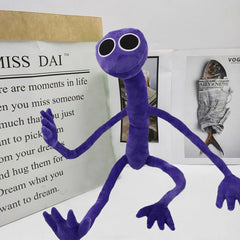 MISS DAI
ere are moments in life
hen you miss someone
much that you just
ant to pick them
rom your dreams
nd hug them for
Dream what you
want to dream
VOGUE